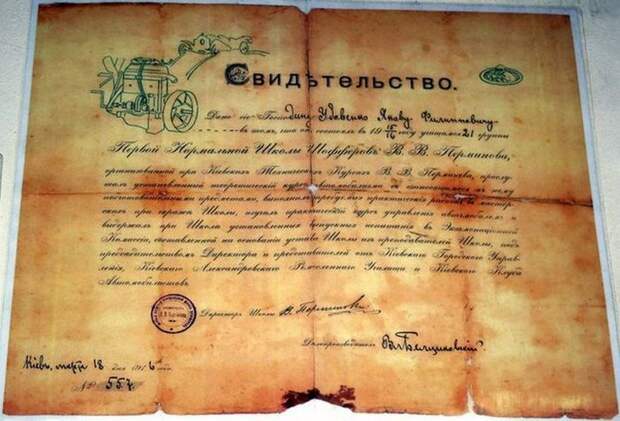 Свидѣтельство.
Дано сіе Господину Удовенко Якову Филипповичу
въ томъ, что онъ состоялъ въ 19 15/16 году учащимся 21 группы
Первой Нормальной Школы Шофферовъ В. В. Перминова,
организованной при Кіевскихъ Техническихъ Курсахъ В. В. Перминова, прослу-
шалъ установленный теоретическій курсъ автомобилизма и относящихся къ нему
предметовъ, выполнилъ практическія работы въ мастер-
ской при гаражѣ Школы, изучилъ практическій курсъ управленія автомобилемъ и
выдержалъ при Школѣ установленныя выпускныя испытанія въ Экзаменаціонной
Комиссіи, составленной на основаніи устава Школы изъ преподавателей Школы, подъ
предсѣдательствомъ Директора и представителей отъ Кіевскаго Городского Управ-
ленія, Кіевскаго Александровскаго Ремесленнаго Училища и Кіевскаго Клуба
Автомобилистовъ.
Директоръ Школы В. Перминовъ
Дѣлопроизводитель
Кіевъ, 18 дня 1916 года
№ 557